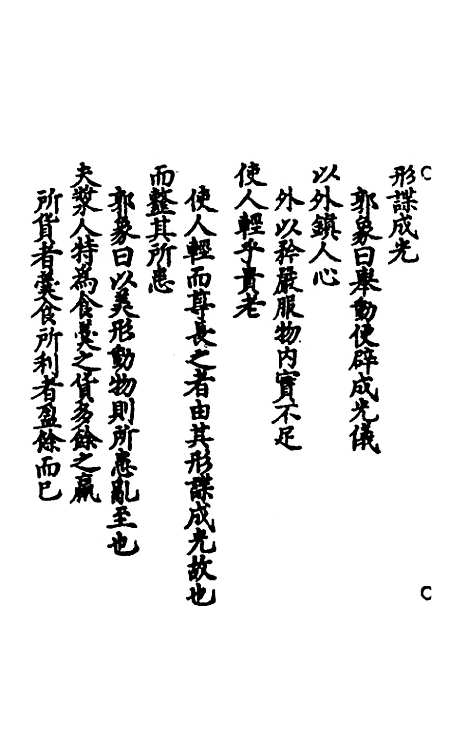 形諜成光
郭象曰舉動便辟成光儀
以外鎮人心
外以矜嚴服物內實不足
使人輕乎貴老
使人輕而尊長之者由其形諜成光故也
而䪡其所患
郭象曰以美形動物則所患亂至也
夫漿人特為食羹之貨多餘之贏
所貨者羹食所利者盈餘而已